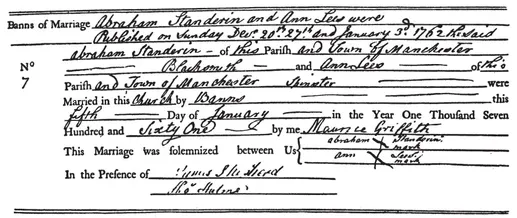 Banns of Marriage Abraham Standerin and Ann Lees were
Published on Sunday Decr. 20th. 27th. and January 3d. 1762 the said
abraham Standerin - of this Parish and Town of Manchester
No Blacksmith and Ann Lees of this
7 Parish and Town of Manchester Spinster were
Married in this Church by Banns this
fifth Day of January in the Year One Thousand Seven
Hundred and Sixty One by me Maurice Griffith
This Marriage was solemnized between Us abraham X Standerin mark
ann X Lees mark
In the Presence of
Thos. Hulme